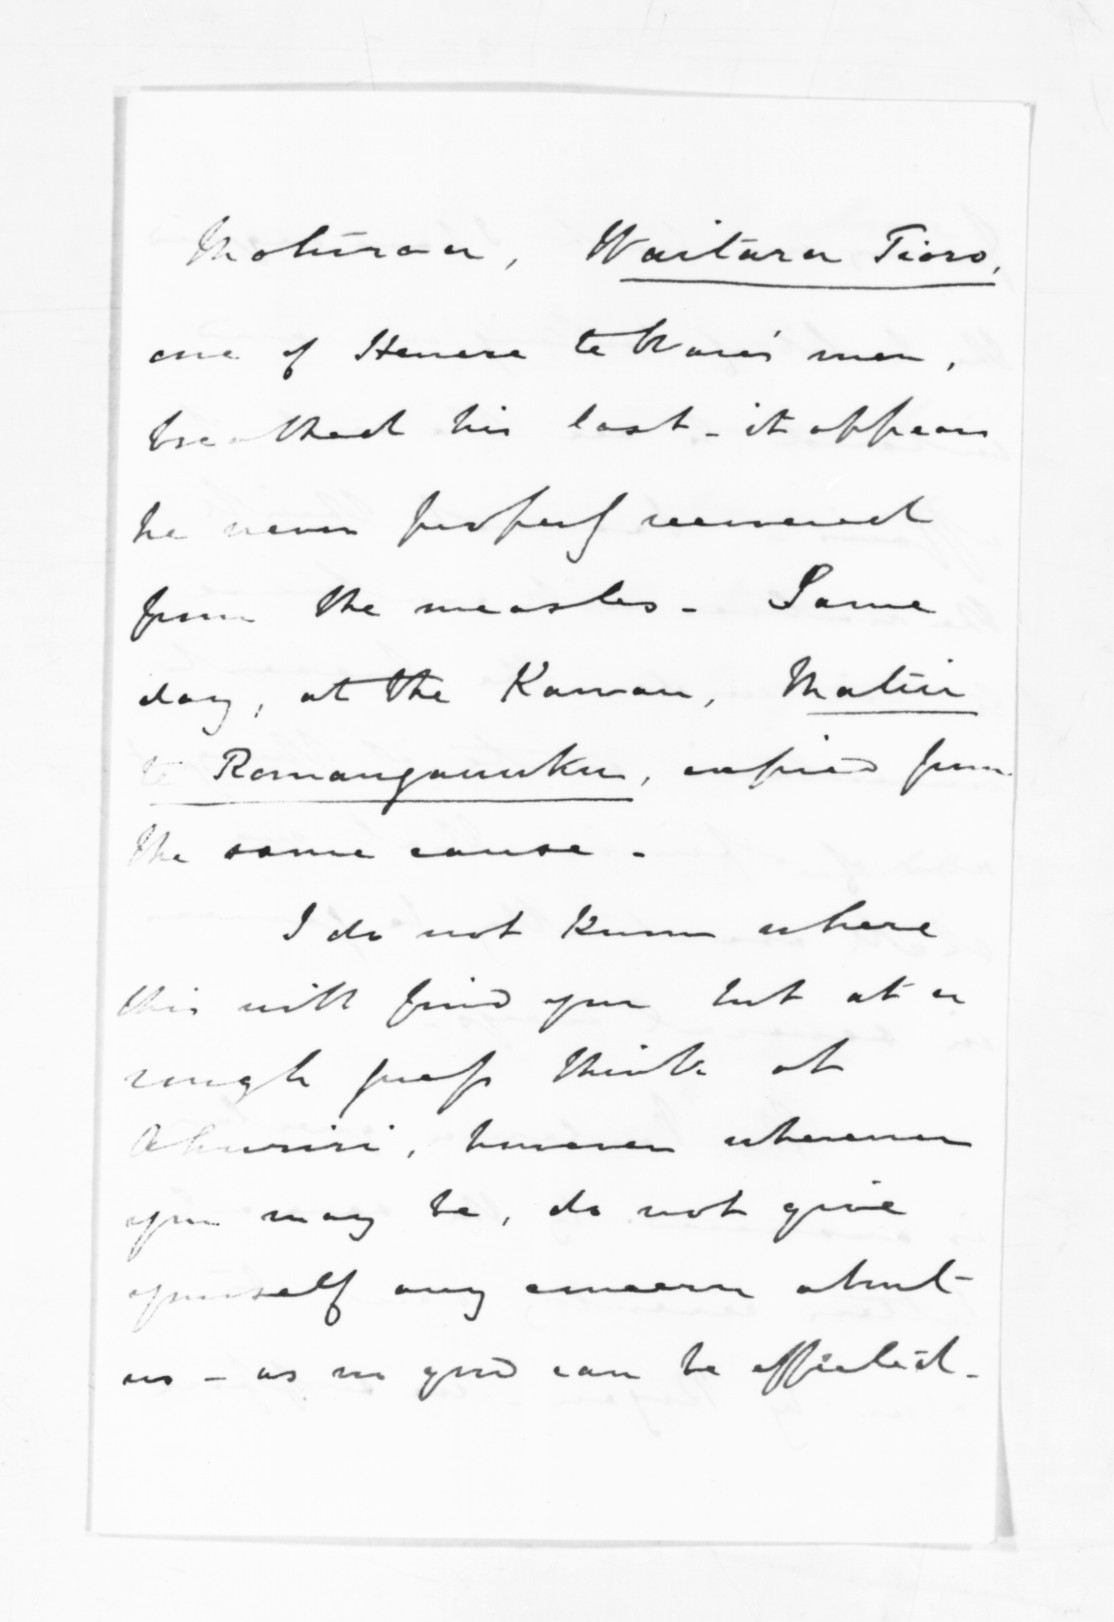 Moturoa, Waitara Tioro,
one of Henere te Ware's men,
breathed his last - it appears
he never properly recovered
from the measles - Same
day, at the Kawau, Matiu
te Romangaunku, expired from
the same cause -
I do not know where
this will find you but at a
rough guess think at
Ahuriri, however wherever
you may be, do not give
yourself any concern about
us - as no good can be effected -